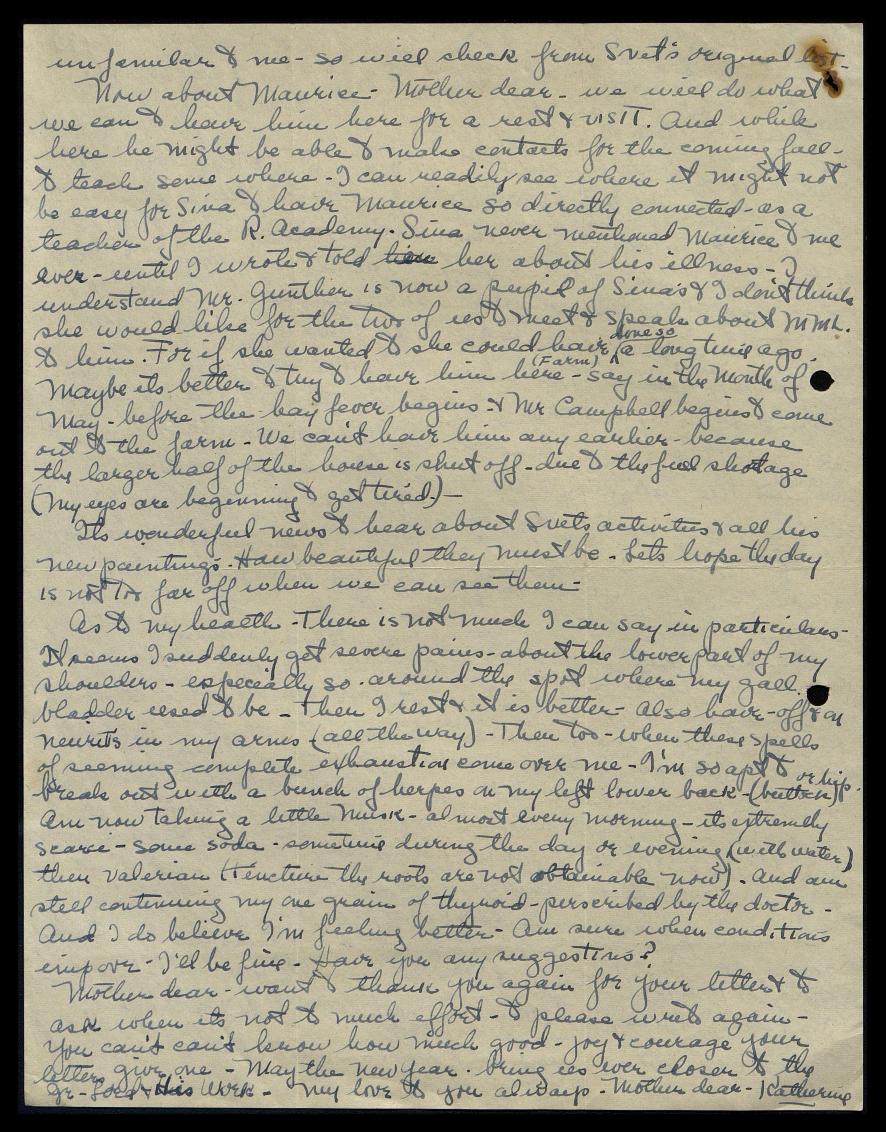 unfamilar to me - so will check from Svet's original list -
Now about Maurice - Mother dear - we will do what
we can to have him here for a rest & VISIT. And while
here he might be able to make contacts for the coming fall -
to teach some where - I can readily see where it might not
be easy for Sina to have Maurice so directly connected - as a
teacher of the R. Academy. Sina never mentioned Maurice to me
ever - until I wrote & told him her about his illness - I
understand Mr. Gunther is now a pupil of Sina's & I don't think
she would like for the two of us to meet & speak about M.M.L.
to him. For if she wanted to she could have done so a long time ago.
Maybe its better to try to have him here (Farm) - say in the Month of
May - before the hay fever begins - & Mr Campbell begins to come
out to the farm - We can't have him any earlier - because
the larger half of the house is shut off - due to the fuel shotage
(My eyes are beginning to get tired.) -
Its wonderful news to hear about Svets activities & all his
new paintings. How beautiful they must be - Lets hope the day
is not too far off when we can see them -
As to my health - There is not much I can say in particulars -
It seems I suddenly get severe pains - about the lower part of my
shoulders - especially so - around the spot where my gall
bladder used to be - Then I rest & it is better - Also have - off & on
neurits in my arms (all the way) - Then too - when these spells
of seeming complete exhaustion come over me - I'm so apt to
break out with a bunch of herpes on my left lower back - (buttock) or hip.
Am now taking a little Musk - almost every morning - its extremely
scarce - some soda - sometime during the day or evening (with water)
then Valerian (tincture the roots are not obtainable now). And am
still continuing my one grain of thyroid - perscribed by the doctor -
And I do believe I'm feeling better - Am sure when conditions
empover - I'll be fine - Have you any suggestins?
Mother dear - want to thank you again for your letter & to
ask when its not to much effort - to please write again -
You can't can't know how much good - joy & courage your
letters give me - May the new year - bring us ever closer to the
Gr - Lord & His Work - My love to you always - Mother dear - Katherine